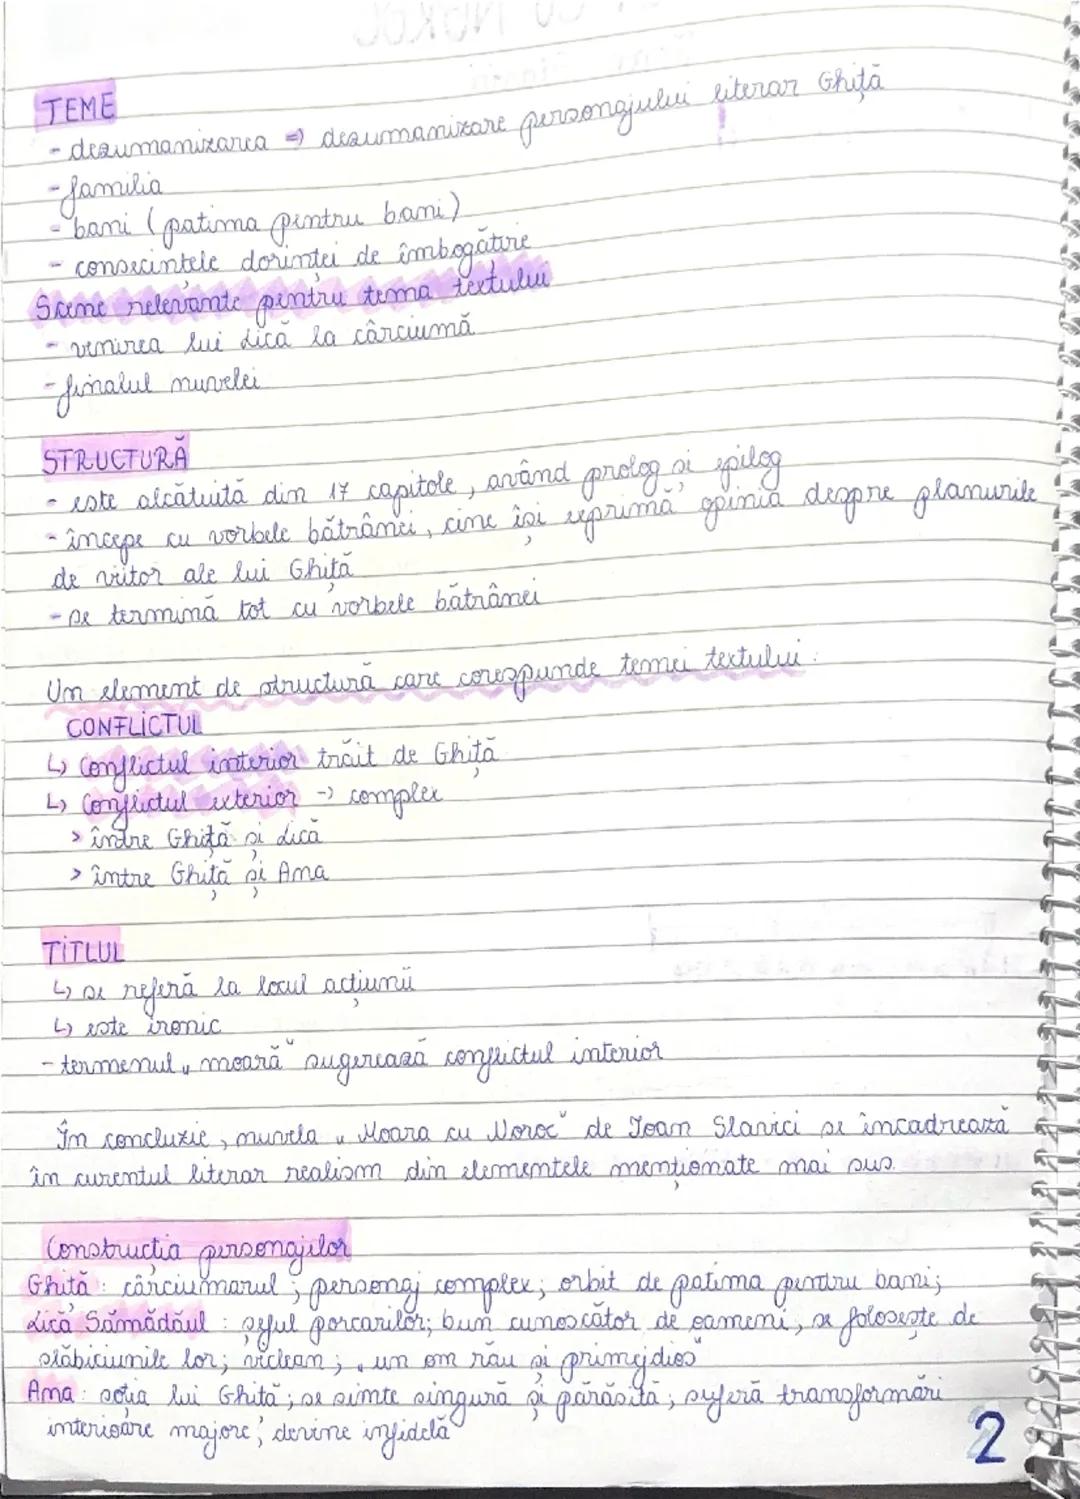 TEME
- dezumanizarea => dezumanizare personajului literar Ghiță
- familia
- bani (patima pentru bani)
- consecințele dorinței de îmbogățire
Scene relevante pentru tema textului
- venirea lui Lică la cârciumă
- finalul nuvelei
STRUCTURĂ
- este alcătuită din 17 capitole, având prolog și epilog
- începe cu vorbele bătrânei, cine își exprimă opinia despre planurile
de viitor ale lui Ghiță
- se termină tot cu vorbele bătrânei
Un element de structură care corespunde temei textului:
CONFLICTUL
↳ Conflictul interior trăit de Ghiță
↳ Conflictul exterior -> complex
> între Ghiță și Lică
> între Ghiță și Ana
TITLUL
↳ se referă la locul acțiunii
↳ este ironic
- termenul „moară" sugerează conflictul interior
În concluzie, nuvela „Moara cu Noroc" de Ioan Slavici se încadrează
în curentul literar realism din elementele menționate mai sus.
Constructia personajilor
Ghiță: cârciumarul; personaj complex; orbit de patima pentru bani;
Lică Sămădăul: șeful porcarilor; bun cunoscător de oameni, se folosește de
slăbiciunile lor; viclean; „un om rău și primejdios"
Ana: soția lui Ghiță; se simte singură și părăsită; suferă transformări
interioare majore; devine infidelă
2